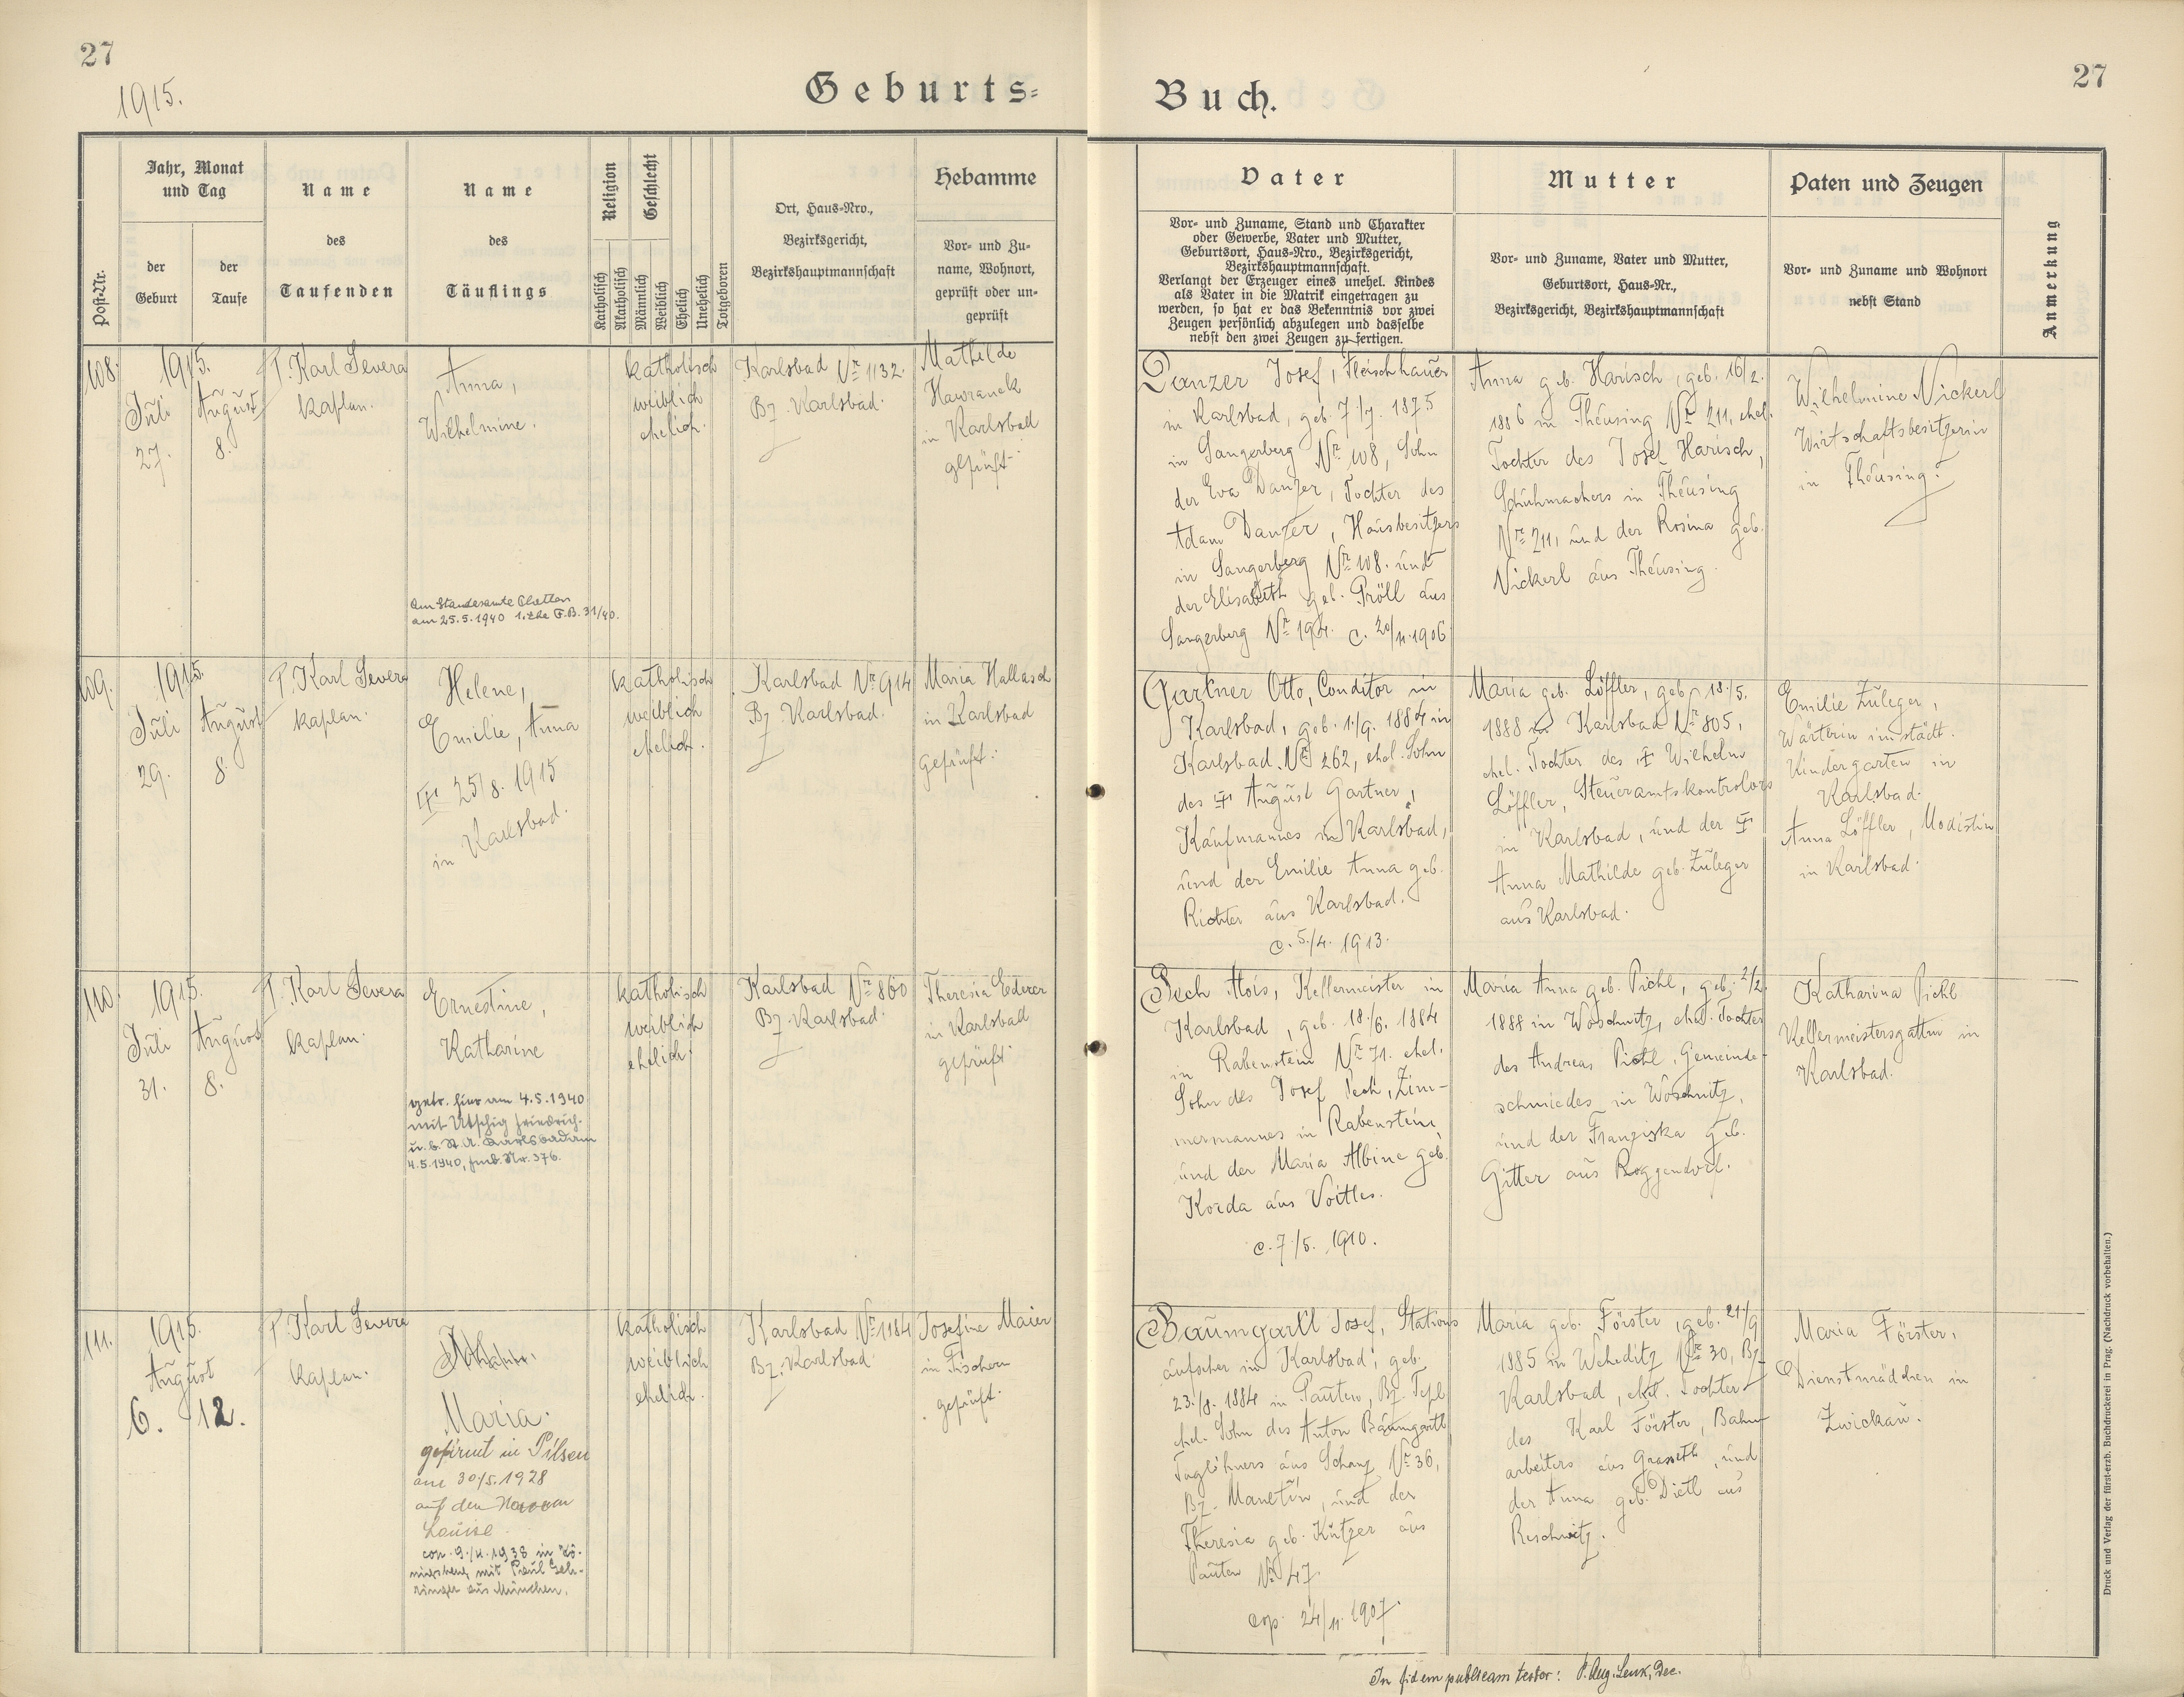 27
1915.
Geburts-
Buch.
27
Post-Nr.
Jahr, Monat
und Tag
der
Geburt
der
Taufe
Name
des
Taufenden
Name
des
Täuflings
Religion
Katholisch
Akatholisch
Geschlecht
Männlich
Weiblich
Ehelich
Unehelich
Totgeboren
Ort, Haus-Nro.,
Bezirksgericht,
Bezirkshauptmannschaft
Hebamme
Vor- und Zu-
name, Wohnort,
geprüft oder un-
geprüft
Vater
Vor- und Zuname, Stand und Charakter
oder Gewerbe, Vater und Mutter,
Geburtsort, Haus-Nro., Bezirksgericht,
Bezirkshauptmannschaft.
Verlangt der Erzeuger eines unehel. Kindes
als Vater in die Matrik eingetragen zu
werden, so hat er das Bekenntnis vor zwei
Zeugen persönlich abzulegen und dasselbe
nebst den zwei Zeugen zu fertigen.
Mutter
Vor- und Zuname, Vater und Mutter,
Geburtsort, Haus-Nr.,
Bezirksgericht, Bezirkshauptmannschaft
Paten und Zeugen
Vor- und Zuname und Wohnort
nebst Stand
Anmerkung
108.
1915.
Juli
27.
August
8.
P. Karl Severa
Kaplan.
Anna,
Wilhelmine.
am Standesamte
am 25.5.1940 1. Ehe F.B. 31/40.
katholisch
weiblich
ehelich.
Karlsbad Nr 1132.
Bz. Karlsbad.
Mathilde
Hawranek
in Karlsbad
geprüft.
Danzer Josef, Fleischhauer
in Karlsbad, geb. 7./7. 1875
in Sangerberg Nr 108, Sohn
der Eva Danzer, Tochter des
Adam Danzer, Hausbesitzers
in Sangerberg Nr 108. und
der Elisabeth geb. Pröll aus
Sangerberg Nr 194. c. 20/11.1906
Anna geb. Harisch, geb. 16/2.
1886 in Theusing Nr 211, ehel.
Tochter des Josef Harisch,
Schuhmachers in Theusing
Nr 211, und der Rosina geb.
Nickerl aus Theusing.
Wilhelmine Nickerl
Wirtschaftsbesitzerin
in Theusing.
109.
1915.
Juli
29.
August
8.
P. Karl Severa
Kaplan.
Helene,
Emilie, Anna
25/8. 1915
in Karlsbad.
katholisch
weiblich
ehelich.
Karlsbad Nr 914
Bz. Karlsbad.
Maria Hallasch
in Karlsbad
geprüft.
Gartner Otto, Conditor in
Karlsbad, geb. 1./9. 1884 in
Karlsbad Nr 262, ehel. Sohn
des August Gartner,
Kaufmannes in Karlsbad,
und der Emilie Anna geb.
Richter aus Karlsbad.
c. 5./4. 1913.
Maria geb. Löffler, geb. 18./5.
1888 in Karlsbad Nr 805,
ehel. Tochter des Wilhelm
Löffler, Steueramtskontrolors
in Karlsbad, und der
Anna Mathilde geb. Zuleger
aus Karlsbad.
Emilie Zuleger,
Wärterin im städt.
Kindergarten in
Karlsbad.
Anna Löffler, Modistin
in Karlsbad.
110.
1915.
Juli
31.
August
8.
P. Karl Severa
Kaplan.
Ernestine,
Katharine
getr. hier am 4.5.1940
mit Utschig Friedrich.
u. b. St. A. Karlsbad am
4.5.1940, Nr. 376.
katholisch
weiblich
ehelich.
Karlsbad Nr 860
Bz. Karlsbad.
Theresia Ederer
in Karlsbad
geprüft.
Pech Alois, Kellermeister in
Karlsbad, geb. 18./6. 1884
in Rabenstein Nr 71. ehel.
Sohn des Josef Pech, Zim-
mermannes in Rabenstein,
und der Maria Albine geb.
Korda aus Voitles.
c. 7./5. 1910.
Maria Anna geb. Pichl, geb. 2/2.
1888 in Woschnitz, ehel. Tochter
des Andreas Pichl, Gemeinde-
schmiedes in Woschnitz,
und der Franziska geb.
Gitter aus Roggendorf.
Katharina Pichl
Kellermeistersgattin in
Karlsbad.
111.
1915.
August
6. 12.
P. Karl Severa
Kaplan.
Maria.
gefirmt in Pilsen
am 30/5.1928
auf den Namen
Louise.
cop. 9./11.1938 in
mit Paul
aus München.
katholisch
weiblich
ehelich.
Karlsbad Nr 1184
Bz. Karlsbad
Josefine Maier
in Fischern
geprüft.
Baumgartl Josef, Stations
in Karlsbad, geb.
23./8. 1884 in Pauten, Bz. Tepl
ehel. Sohn des Anton Baumgartl
Taglöhners aus Schanz Nr 36,
Bz. Manetin, und der
Theresia geb. Kutzer aus
Pauten Nr 47
cop. 24/11. 1907.
Maria geb. Förster, geb. 21/9
1885 in Weheditz Nr 30, Bz.
Karlsbad, ehel. Tochter
des Karl Förster, Bahn-
arbeiters aus Grasseth, und
der Anna geb. Dietl aus
Reschwitz.
Maria Förster,
Dienstmädchen in
Zwickau.
In fidem publicam testor: P. Aug. Lenk, Dec.
Druck und Verlag der fürst-erzb. Buchdruckerei in Prag. (Nachdruck vorbehalten.)